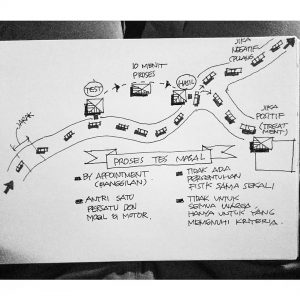 JIKA
NEGATIF
(PULANG)
10 MENIT
PROSES
TEST
HASIL
JARAK
JIKA
POSITIF
(TREAT
MENT)
PROSES TES MASAL
BY APPOINTMENT
(PANGGILAN)
ANTRI SATU
PERSATU DGN
MOBIL & MOTOR.
TIDAK ADA
PERSENTUHAN
FISIK SAMA SEKALI
TIDAK UNTUK
SEMUA WARGA
HANYA UNTUK YANG
MEMENUHI KRITERIA.